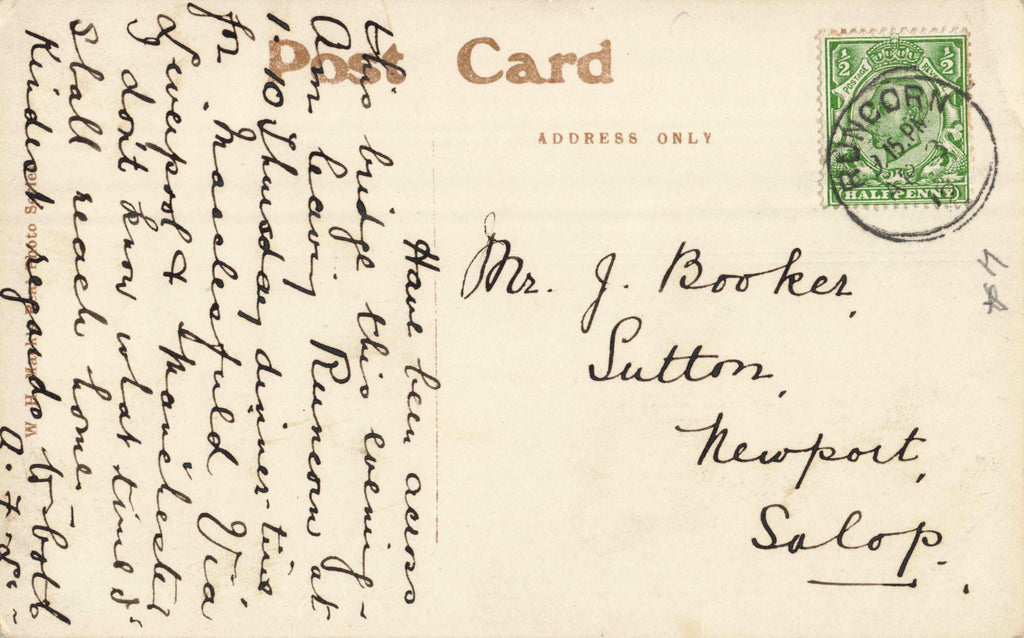 Post Card
ADDRESS ONLY
½ ½
POSTAGE
HALFPENNY
RUNCORN
Mr. J. Booker,
Sutton,
Newport,
Salop.
Have been across
this bridge this evening-
Am leaving Runcorn at
1.10 Thursday dinner-time
for Macclesfield Via
Liverpool & Manchester
I don't know what time I
shall reach home-
Kindest regards to both